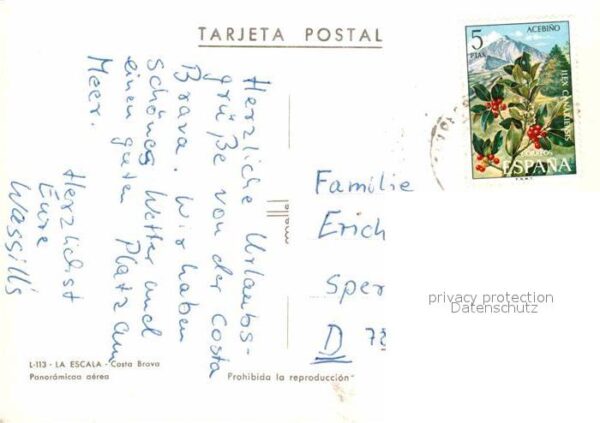 TARJETA POSTAL
5
PTAS
ACEBIÑO
ILEX CANARIENSIS
CORREOS
ESPAÑA
Herzliche Urlaubs-
grüße von der Costa
Brava. Wir haben
schönes Wetter und
einen guten Platz am
Meer.
Herzlichst
Eure
Wassilis
Familie
Erich
Sper
D 78
privacy protection
Datenschutz
L-113 - LA ESCALA - Costa Brava
Panorámicaa aérea
Prohibida la reproducción